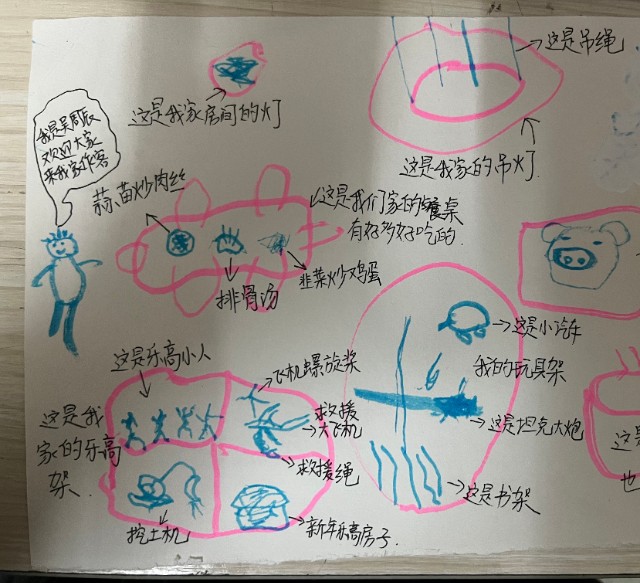 这是吊绳
这是我家房间的灯
我是吴周辰
欢迎大家
来我家作客
这是我家的吊灯
蒜苗炒肉丝
这是我们家的餐桌
有好多好吃的
排骨汤
韭菜炒鸡蛋
这是小汽车
我的玩具架
这是坦克大炮
这是书架
这是乐高小人
飞机螺旋桨
救援
大飞机
救援绳
这是我
家的乐高
架
挖土机
新年乐高房子
这是
也